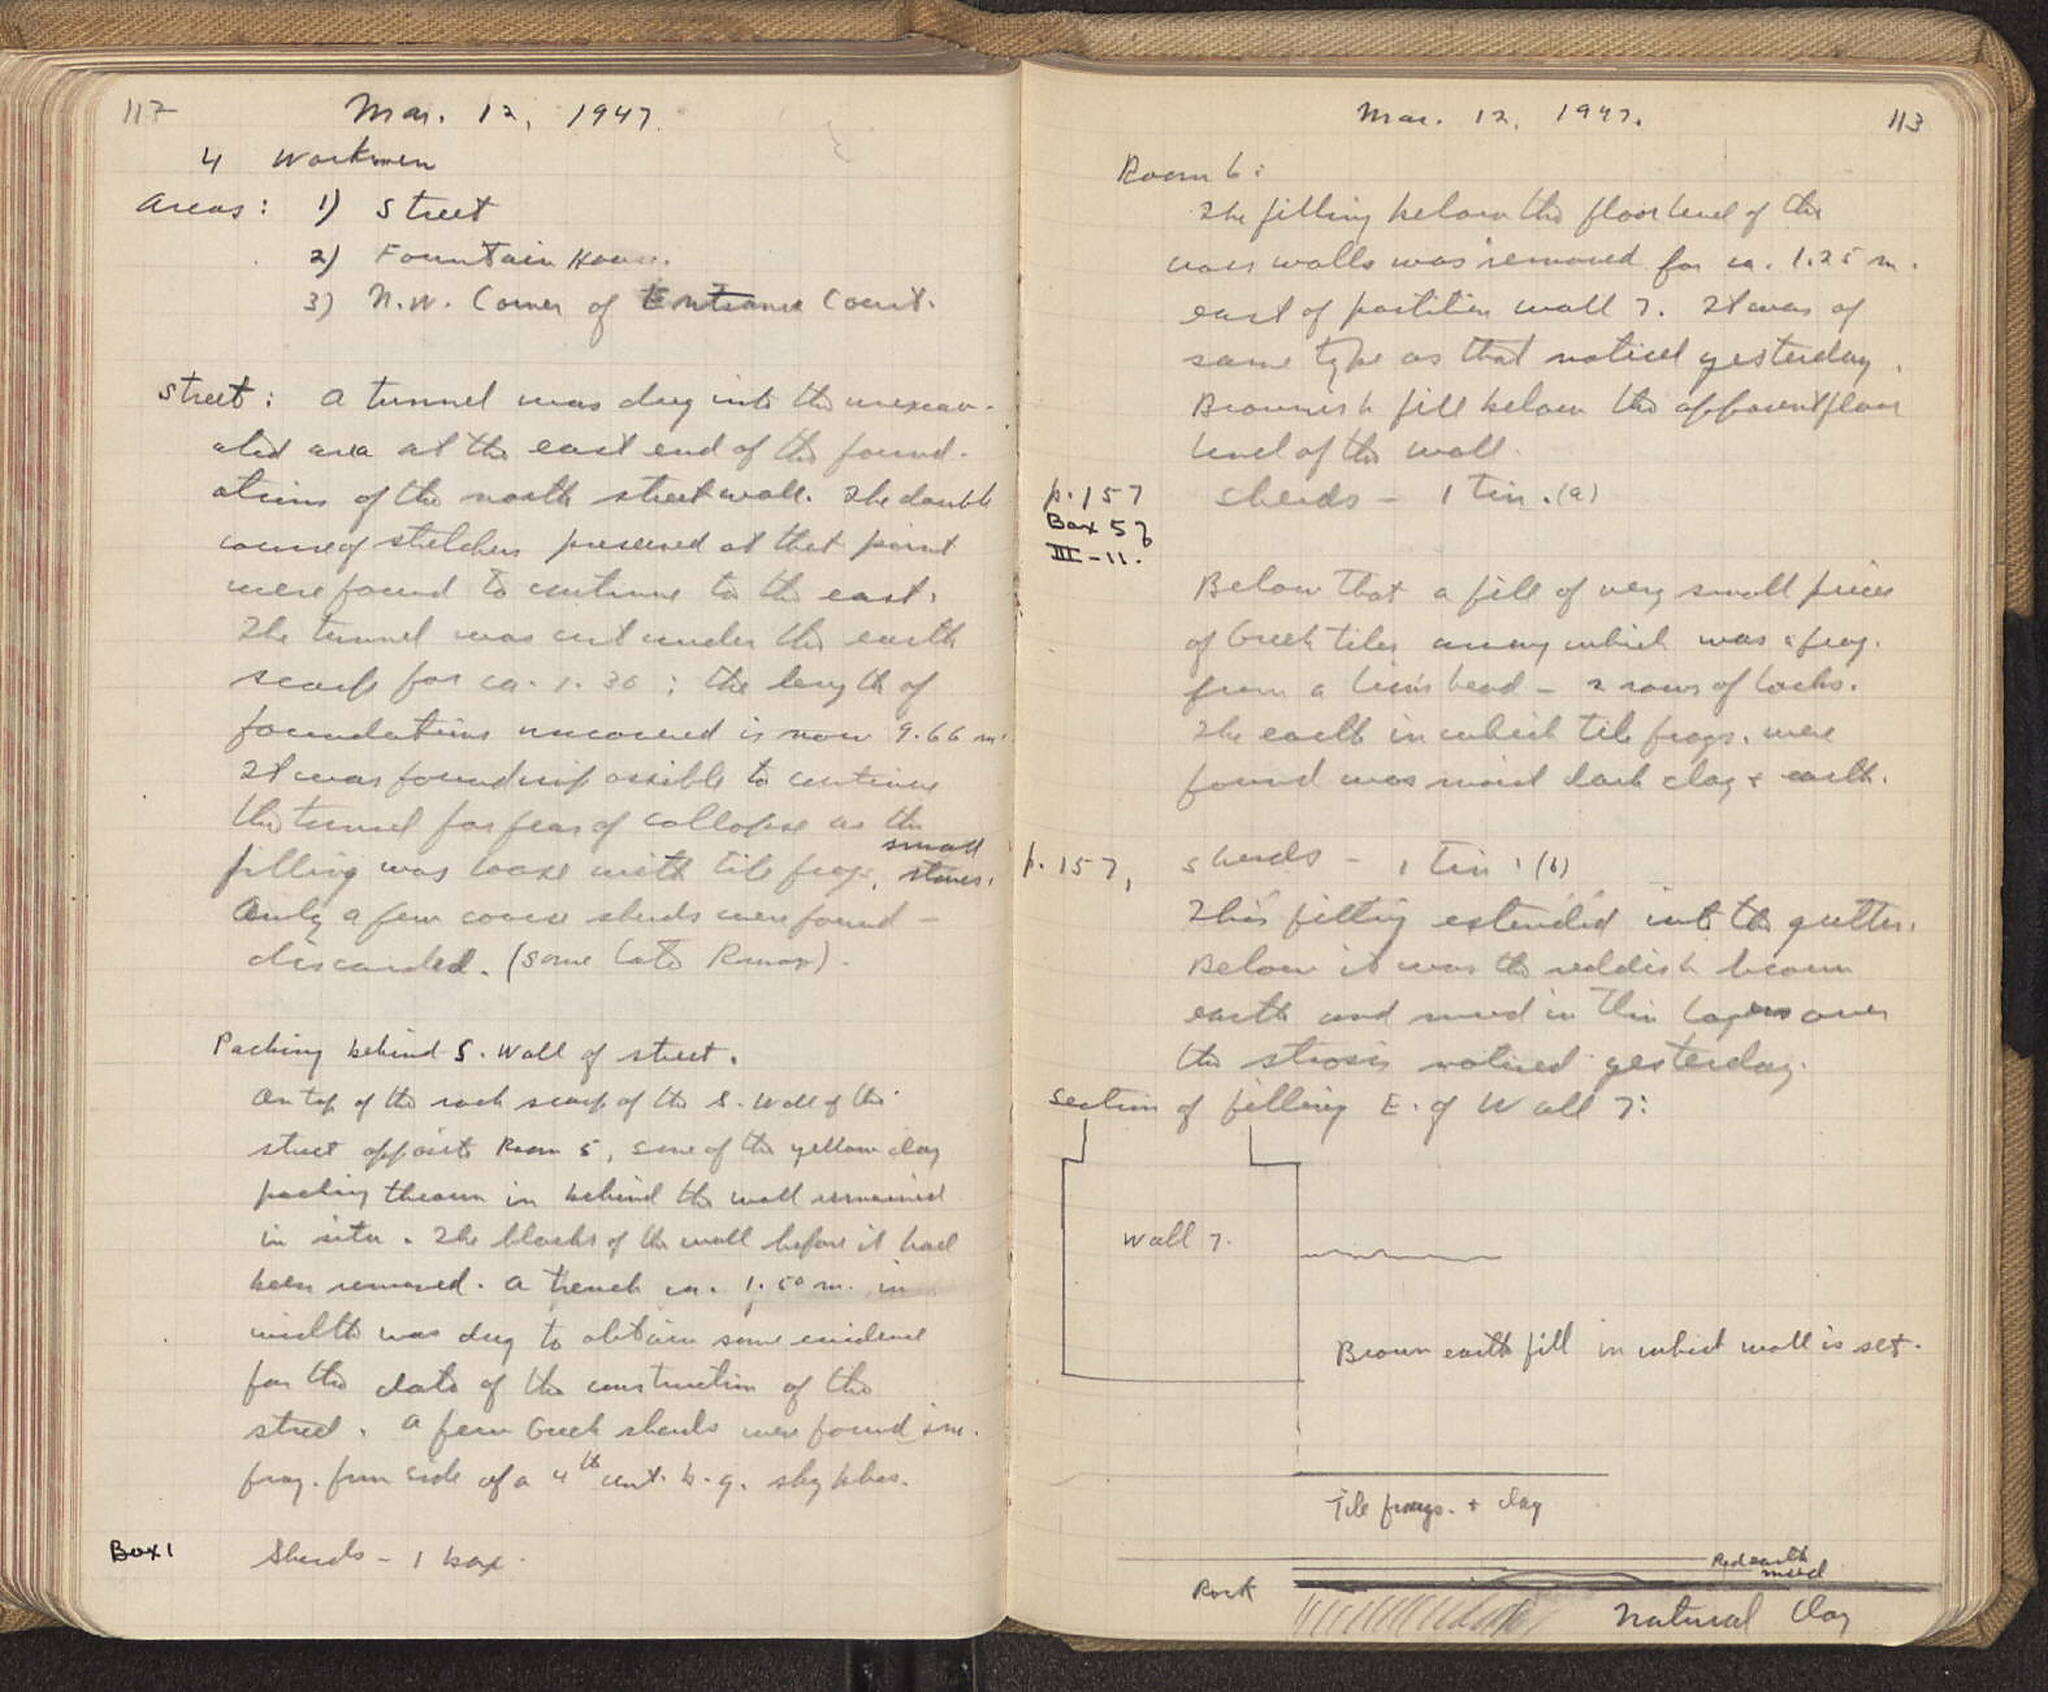 117
Mar. 12, 1947.
4 Workmen
Areas: 1) Street
2) Fountain House.
3) N.W. Corner of Entrance Court.
Street: A tunnel was dug into the unexcav-
ated area at the east end of the found-
ations of the north street wall. The double
course of stretchers preserved at that point
were found to continue to the east.
The tunnel was cut under the earth
scarp for ca. 1.30; the length of
foundations uncovered is now 9.66 m.
It was found impossible to continue
the tunnel for fear of collapse as the
small
filling was loose with tile frags, stones.
Only a few coarse sherds were found -
discarded. (some late Roman).
Packing behind S. Wall of street.
On top of the rock scarp of the S. Wall of the
street opposite Room 5, some of the yellow clay
packing thrown in behind the wall remained
in situ. The blocks of the wall before it had
been removed. A trench ca. 1.50 m. in
width was dug to obtain some evidence
for the date of the construction of the
street. A few Greek sherds were found; one.
frag. from side of a 4th cent. b.g. skyphos.
Box 1
Sherds - 1 box.
Mar. 12, 1947.
113
Room 6:
The filling below the floor level of the
walls was removed for ca. 1.25 m.
east of partition wall 7. It was of
same type as that noticed yesterday.
Brownish fill below the apparent floor
level of the wall.
p. 157
sherds - 1 tin. (a)
Box 57
III-11.
Below that a fill of very small pieces
of Greek tiles among which was a frag.
from a lion's head - 2 rows of locks.
The earth in which tile frags. were
found was moist dark clay + earth.
p. 157,
sherds - 1 tin. (b)
This filling extended into the gutter.
Below it was the reddish brown
earth and mud in thin layers over
the strosis noticed yesterday.
Section of filling E. of Wall 7:
Wall 7.
Brown earth fill in which wall is set.
Tile frags. + clay
Red earth
mud
Rock
Natural Clay